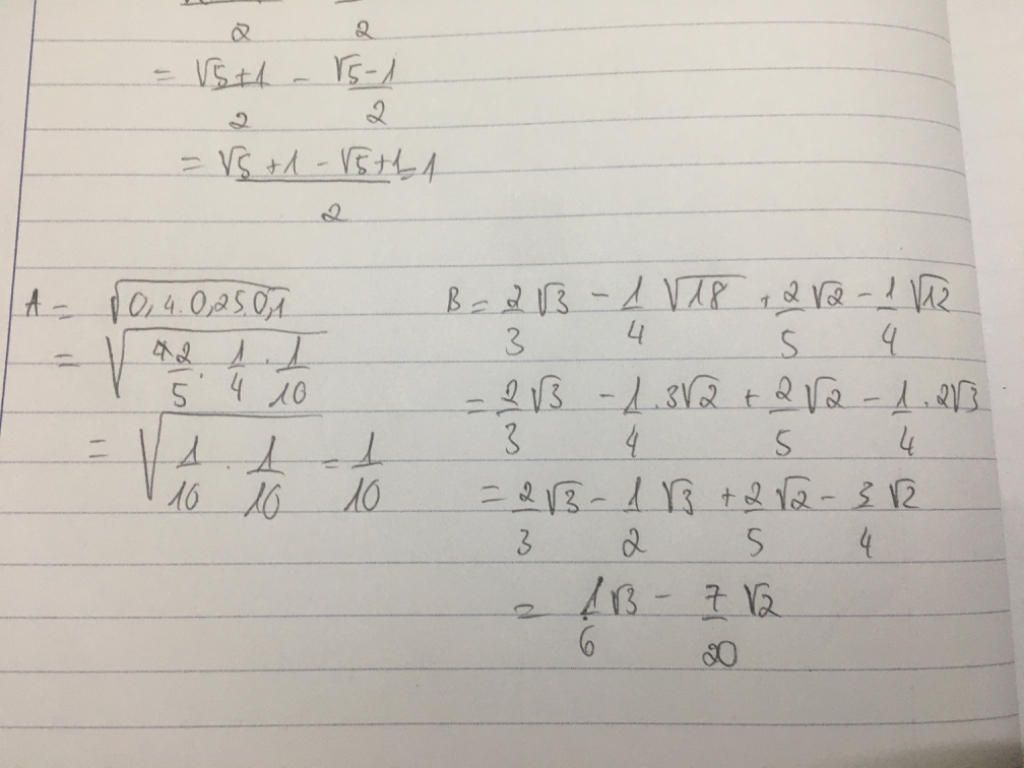 2 2
= √5+1/2 - √5-1/2
= √5 +1 - √5+1/2 = 1
A = √0,4.0,25.0,1
= √2/5 . 1/4 . 1/10
= √1/10 . 1/10 = 1/10
B = 2/3 √3 - 1/4 √18 + 2/5 √2 - 1/4 √12
= 2/3 √3 - 1/4 . 3√2 + 2/5 √2 - 1/4 . 2√3
= 2/3 √3 - 1/2 √3 + 2/5 √2 - 3/4 √2
= 1/6 √3 - 7/20 √2